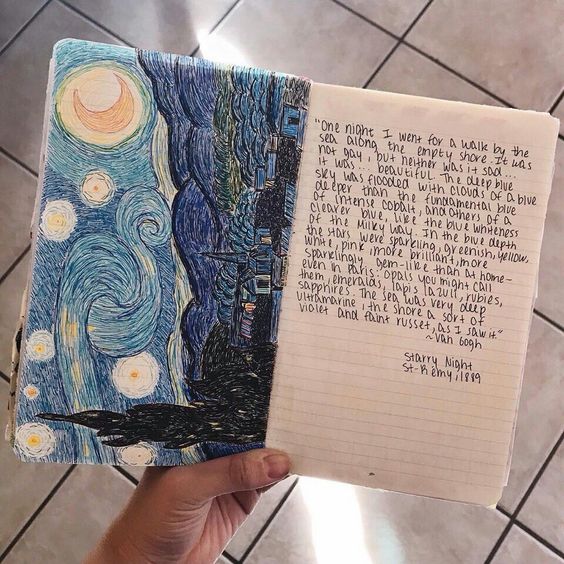 "One night I went for a walk by the
sea along the empty shore. It was
not gay, but neither was it sad...
it was - beautiful. The deep blue
sky was flooded with clouds of a blue
deeper than the fundamental blue
of intense cobalt, and others of a
clearer blue, like the blue whiteness
of the Milky Way. In the blue depth
the stars were sparkling, greenish, yellow,
white, pink, more brilliant, more
sparklingly gem-like than at home-
even in Paris: opals you might call
them, emeralds, lapis lazuli, rubies,
sapphires. The sea was very deep
ultramarine, the shore a sort of
violet and faint russet, as I saw it."
~Van Gogh
Starry Night
St-Rémy, 1889